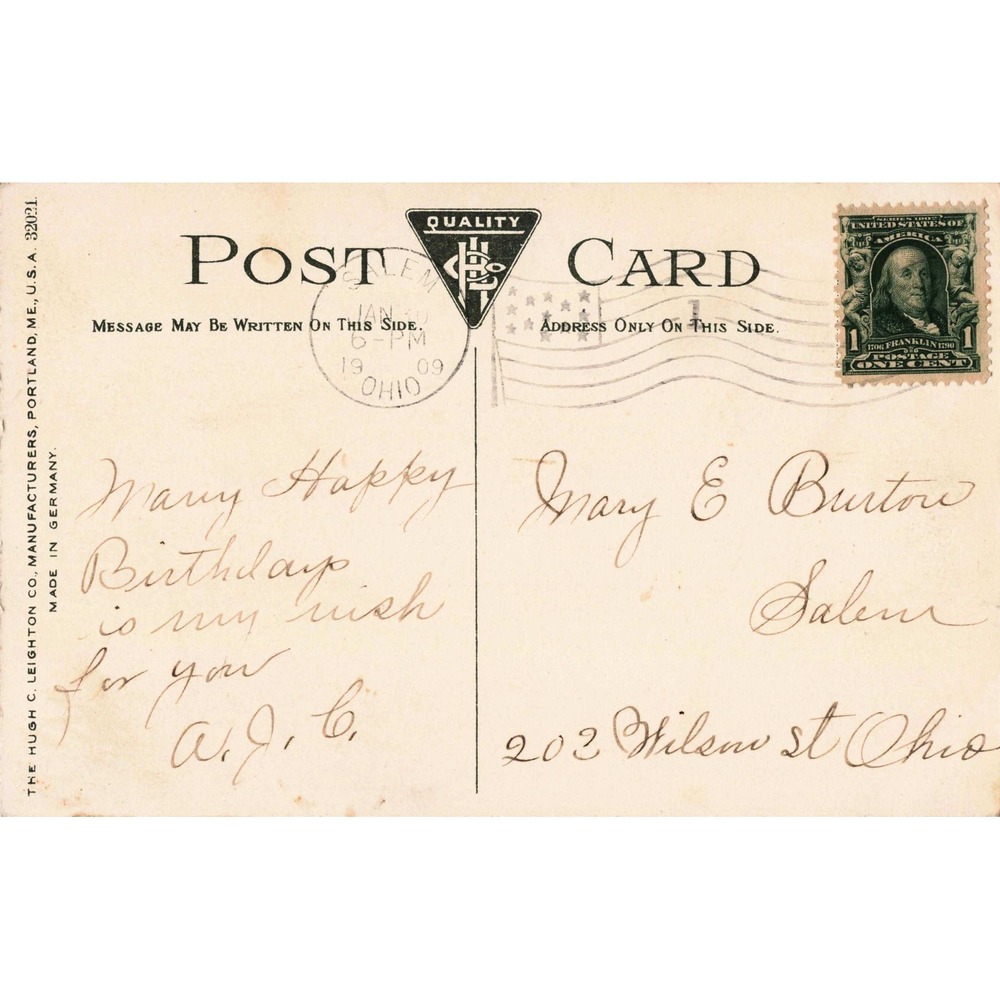 THE HUGH C. LEIGHTON CO., MANUFACTURERS, PORTLAND, ME., U.S.A. 32021.
MADE IN GERMANY.
POST CARD
QUALITY
MESSAGE MAY BE WRITTEN ON THIS SIDE.
ADDRESS ONLY ON THIS SIDE.
SALEM
JAN
6-PM
19 09
OHIO
1
SERIES 1902
UNITED STATES OF
AMERICA
1 1
1706 FRANKLIN 1790
POSTAGE
ONE CENT
Many Happy
Birthdays
is my wish
for you
A. J. C.
Mary E Burton
Salem
202 Wilson st Ohio